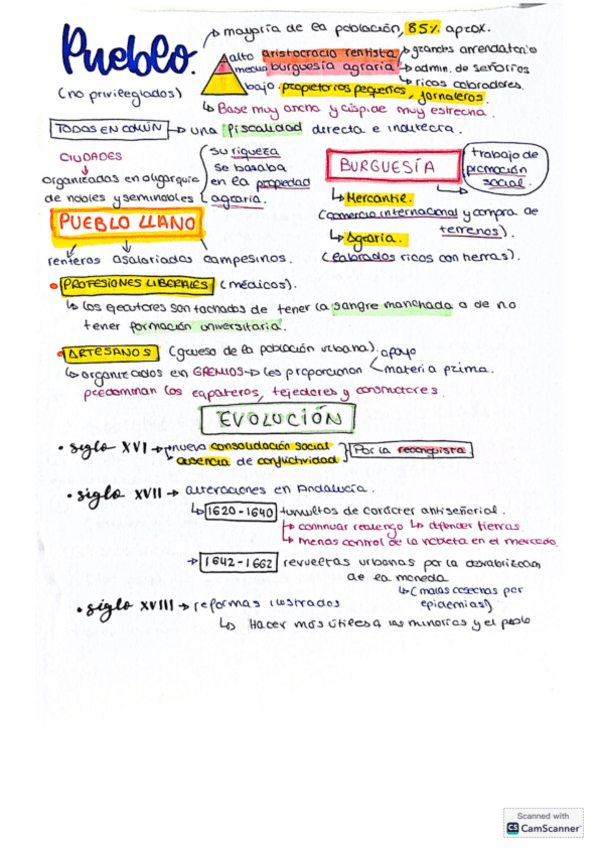 Pueblo.
(no privilegiados)
mayoría de la población, 85% aprox.
alto aristocracia rentista grandes arrendatario
medio burguesía agraria admin. de señorios
ricos labradores.
bajo propietarios pequeños, jornaleros.
Base muy ancha y cúspide muy estrecha.
TODOS EN COMÚN una fiscalidad directa e indirecta.
CIUDADES
organizadas en oligarquía
de nobles y seminobles
su riqueza
se basaba
en la propiedad
agraria.
BURGUESÍA
trabajo de
promoción
social.
Mercantil.
(comercio internacional y compra de
terrenos).
Agraria.
(labrados ricos con tierras).
PUEBLO LLANO
renteros asalariados campesinos.
PROFESIONES LIBERALES (médicos).
los ejecutores son tachados de tener la sangre manchada o de no
tener formación universitaria.
ARTESANOS (grueso de la población urbana).
organizados en GREMIOS les proporcionan
apoyo
materia prima.
predominan los zapateros, tejedores y constructores.
EVOLUCIÓN
• siglo XVI nueva consolidación social
ausencia de conflictividad
Por la reconquista.
• siglo XVII alteraciones en Andalucía.
1620-1640 tumultos de carácter antiseñorial.
continuar realengo defender tierras
menos control de la nobleza en el mercado.
1642-1662 revueltas urbanas por la
de la moneda
(malas cosechas por
epidemias)
• siglo XVIII reformas ilustrados
Hacer más útiles a las minorías y el pueblo
Scanned with
CS CamScanner